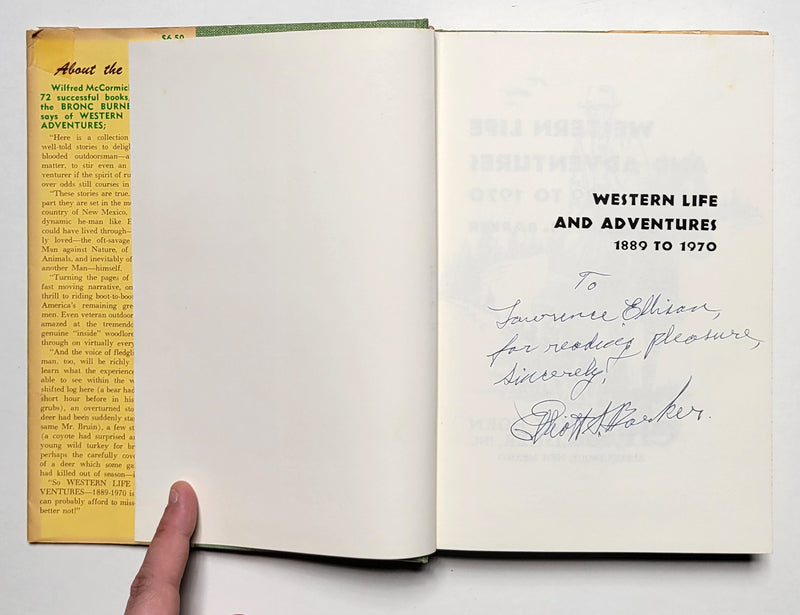 $6.50
About the
Wilfred McCormic
72 successful books,
the BRONC BURNE
says of WESTERN
ADVENTURES;
"Here is a collection
well-told stories to deligh
blooded outdoorsman—a
matter, to stir even an
venturer if the spirit of ru
over odds still courses in
"These stories are true.
part they are set in the m
country of New Mexico,
dynamic he-man like E
could have lived through—
ly loved—the oft-savage
Man against Nature, of
Animals, and inevitably of
another Man—himself.
"Turning the pages of
fast moving narrative, on
thrill to riding boot-to-boo
America's remaining gre
men. Even veteran outdoor
amazed at the tremendo
genuine "inside" woodlore
through on virtually every
"And the voice of fledgli
man, too, will be richly
learn what the experience
able to see within the w
shifted log here (a bear had
short hour before in his
grubs), an overturned sto
deer had been suddenly star
same Mr. Bruin), a few st
(a coyote had surprised a
young wild turkey for br
perhaps the carefully cove
of a deer which some ga
had killed out of season—
"So WESTERN LIFE
VENTURES—1889-1970 is
can probably afford to miss
better not!"
WESTERN LIFE
AND ADVENTURES
1889 TO 1970
To
Lawrence Ellison,
for reading pleasure,
Sincerely,
Elliott S. Barker.